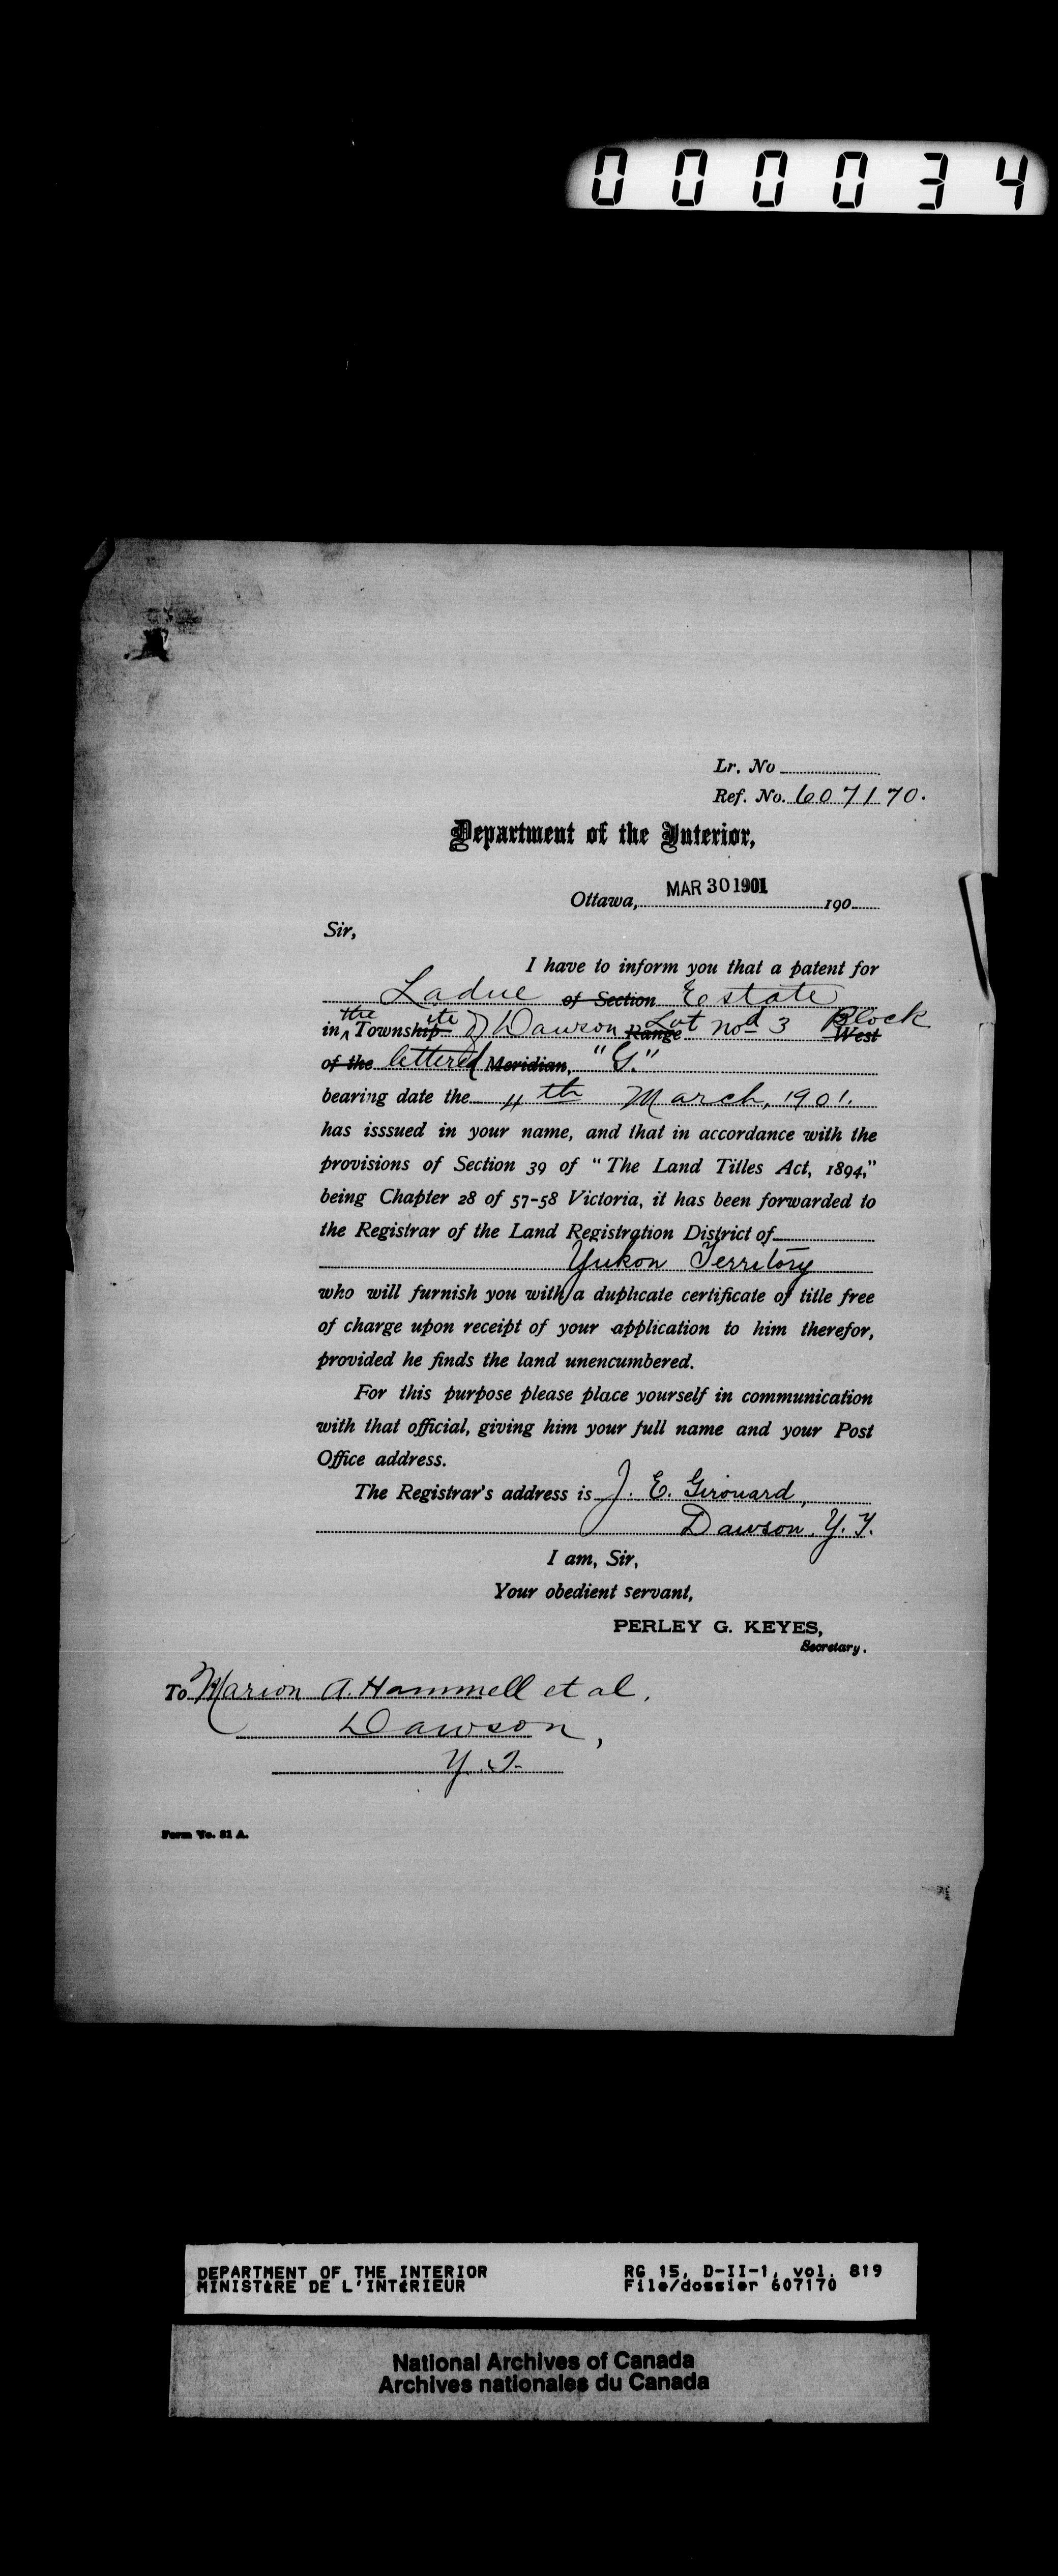 000034
Lr. No
Ref. No. 607170.
Department of the Interior,
Ottawa, MAR 30 1901 190
Sir,
I have to inform you that a patent for
Ladue of Section Estate
in the Townsite of Dawson Range Lot nod 3 Block West
of the lettered Meridian, "G."
bearing date the 11th March, 1901.
has isssued in your name, and that in accordance with the
provisions of Section 39 of "The Land Titles Act, 1894,"
being Chapter 28 of 57-58 Victoria, it has been forwarded to
the Registrar of the Land Registration District of
Yukon Territory
who will furnish you with a duplicate certificate of title free
of charge upon receipt of your application to him therefor,
provided he finds the land unencumbered.
For this purpose please place yourself in communication
with that official, giving him your full name and your Post
Office address.
The Registrar's address is J. E. Girouard,
Dawson, Y.T.
I am, Sir,
Your obedient servant,
PERLEY G. KEYES,
Secretary.
To Marion A. Hammell et al.
Dawson,
Y.T.
Form No. 81 A.
DEPARTMENT OF THE INTERIOR RG 15, D-II-1, vol. 819
MINISTÈRE DE L'INTÉRIEUR File/dossier 607170
National Archives of Canada
Archives nationales du Canada